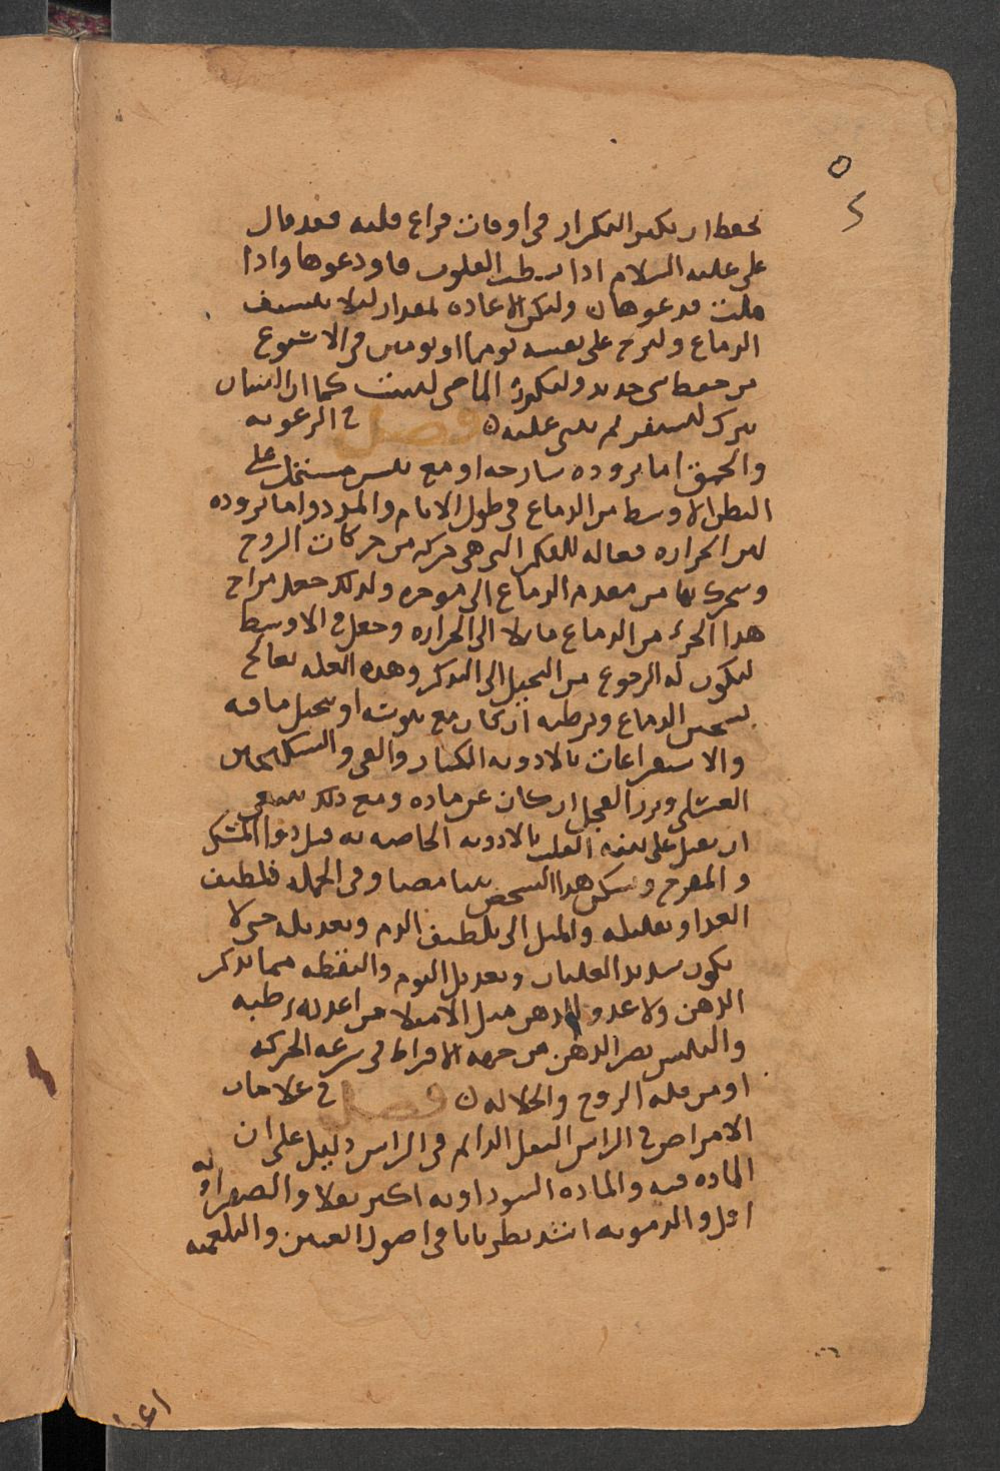 يحفظ ان يكثر التكرار في اوقات فراغ قلبه فقد قال
علي عليه السلام اذا نشطت القلوب فاودعوها واذا
ملت فدعوها وليكن الاعاده لمقدار لئلا ينشف
الدماغ وليرح على نفسه يوما او يومين في الاسبوع
من حفظ شي جديد وليكرر الماضي ليثبت كما ان البنيان
يترك لينشف ثم يبنى عليه فصل في الرعونه
والحمق اما بروده ساذجه او مع يبس مشتمل على
البطن الاوسط من الدماغ في طول الايام والمدد واما بروده
لان الحراره فعاله للفكر التي هي حركه من حركات الروح
وتحركها من مقدم الدماغ الى موخره ولذلك جعل مزاج
هذا الجزء من الدماغ مايلا الى الحراره وجعل في الاوسط
ليكون له الرجوع من التخيل الى التذكر وهذه العله تعالج
بتسخين الدماغ وترطيبه ان كان مع يبوسه او تحليل ما فيه
والاستفراغات بالادويه الكبار والقي والسكنجبين
العنصلي وبزر الفجل ان كان عن ماده ومع ذلك ينبغي
ان يقبل على تقويه القلب بالادويه الخاصه به مثل دوا المسك
والمفرح ويسكن هذا الشخص بيتا مضيا وفي الجمله فتلطيف
الغدا وتقليله والميل الى تلطيف الدم وتعديله حتى لا
يكون شديد الغليان وتعديل النوم واليقظه مما يذكر
الذهن ولا عدو للذهن مثل الامتلا من اغذيه رطبه
واليبس يضر الذهن من جهه الافراط في سرعه الحركه
او من قله الروح وانحلاله فصل في علامات
الامراض في الراس الثقل الدايم في الراس دليل على ان
الماده فيه والماده السوداويه اكثر ثقلا والصفراويه
اقل والدمويه اشد ضربانا في اصول العينين والبلغميه